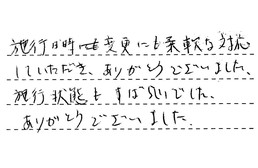 施行日時も変更にも柔軟な対応
していただき、ありがとうございました。
施行状態もすばらしいでした。
ありがとうございました。